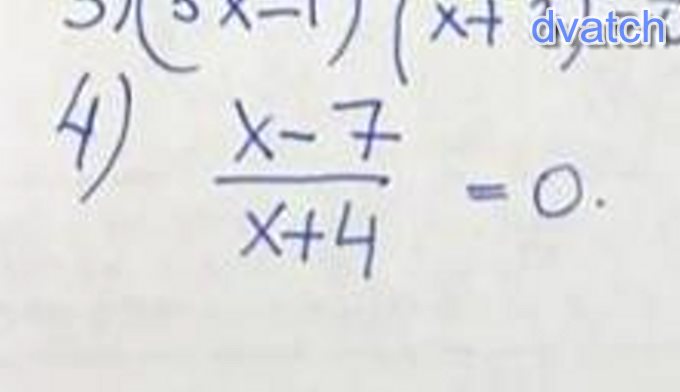 3) (3x-1) (x+
dvatch
4) x-7
x+4 = 0.